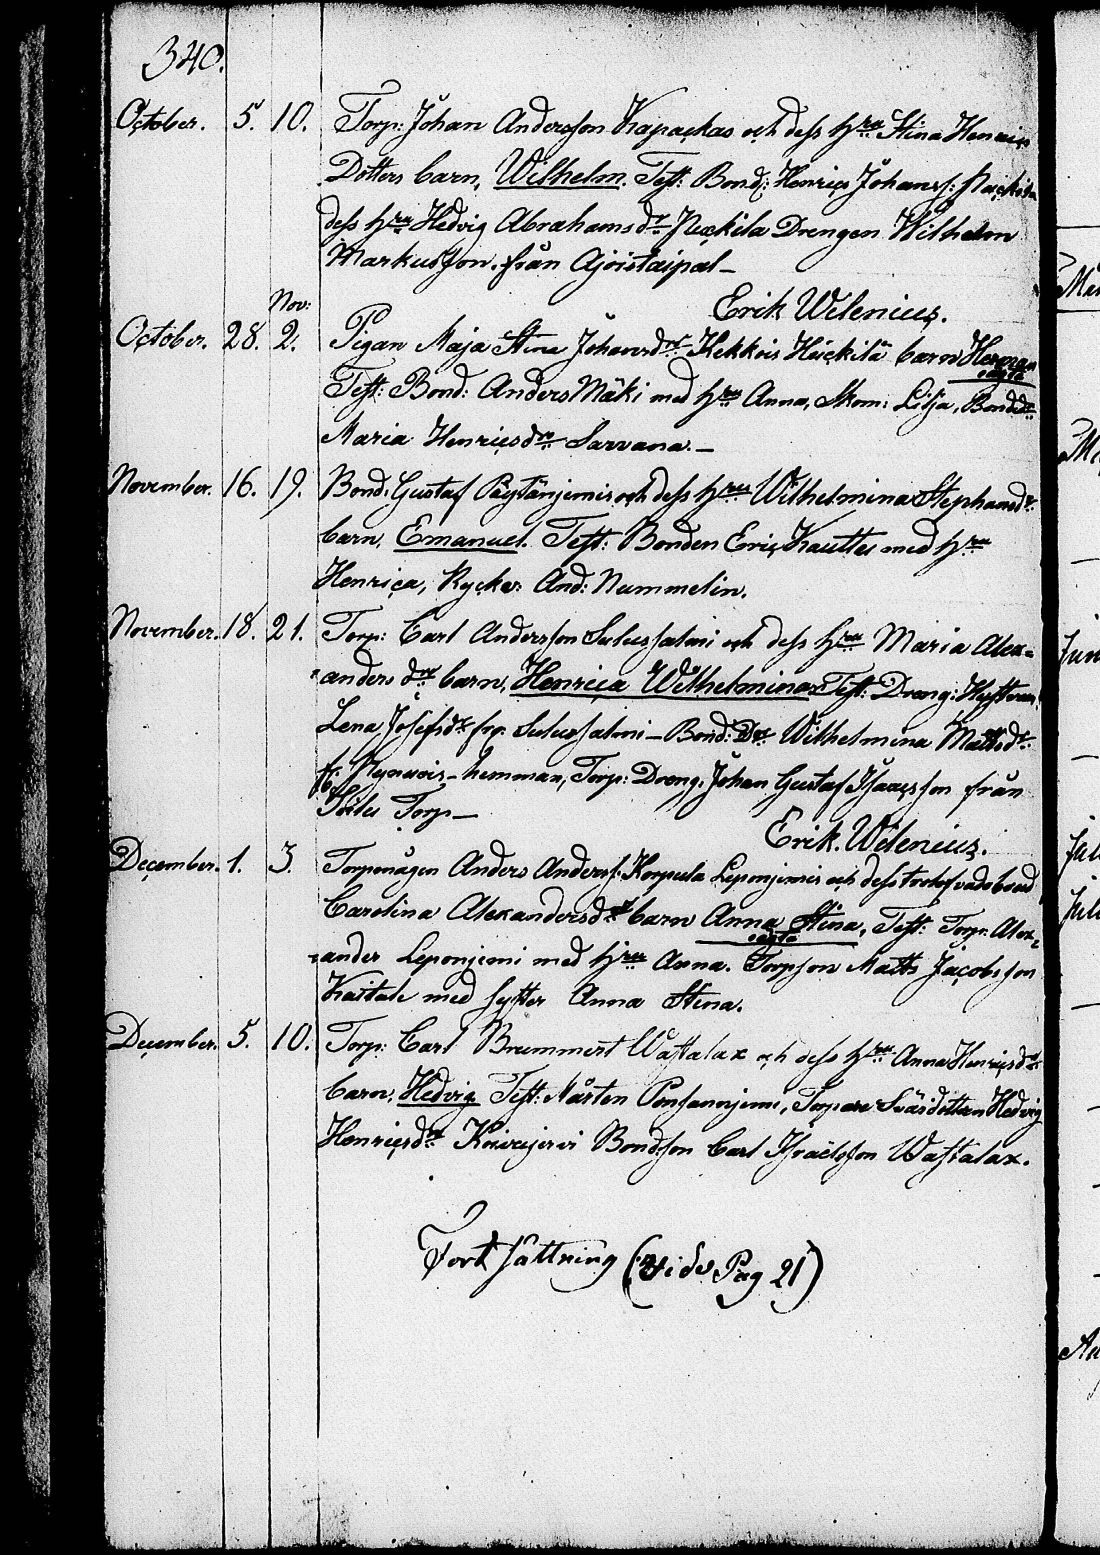 340.
October. 5. 10. Torp: Johan Andersson Kapackas och dess hru Stina Henrics
Dotters barn, Wilhelm. Test: Bond: Henrics Johanss:
dess hru Hedvig Abrahamsdr Drengen Wilhelm
Markusson. från Ajoistaipal –
Erik Wilenius.
Nov:
October. 28. 2. Pigan Maja Stina Johansdr Kekkois Häckilä barn Herman
oägta
Test: Bond: Anders Mäki med hru Anna, Skom: Lilja, Bondedr
Maria Henricsdr Sarvana. –
November. 16. 19. Bond. Gustaf och dess hru Wilhelmina Stephansdr
barn, Emanuel. Test: Bonden Eric Kauttu med hru
Henrica, Ryck: And: Nummelin.
November. 18. 21. Torp: Carl Andersson Sulussalmi och dess hru Maria Alex=
=anders dr barn, Henrica Wilhelmina. Test: Dreng:
Lena Josefsdr fr: Sulussalmi – Bond: Dr Wilhelmina Mattsdr
hemman, Torp: Dreng. Johan Gustaf Isaacsson från
Torp –
Erik. Wilenius.
December. 1. 3. Anders Anderss: Korpula Leponjemi och dess
Carolina Alexandersdr barn Anna Stina, Test: Torp: Alex=
oägta
=ander Leponjemi med hru Anna. Torpson Matts Jacobsson
med syster Anna Stina.
December. 5. 10. Torp: Carl Brummert Wastalax och dess hru Anna Henricsdr
barn, Hedvig Test: Mårten Torpare Hedvig
Henricsdr Koivujervi Bondson Carl Israelsson Wastalax.
Fortsättning (vide Pag 21)